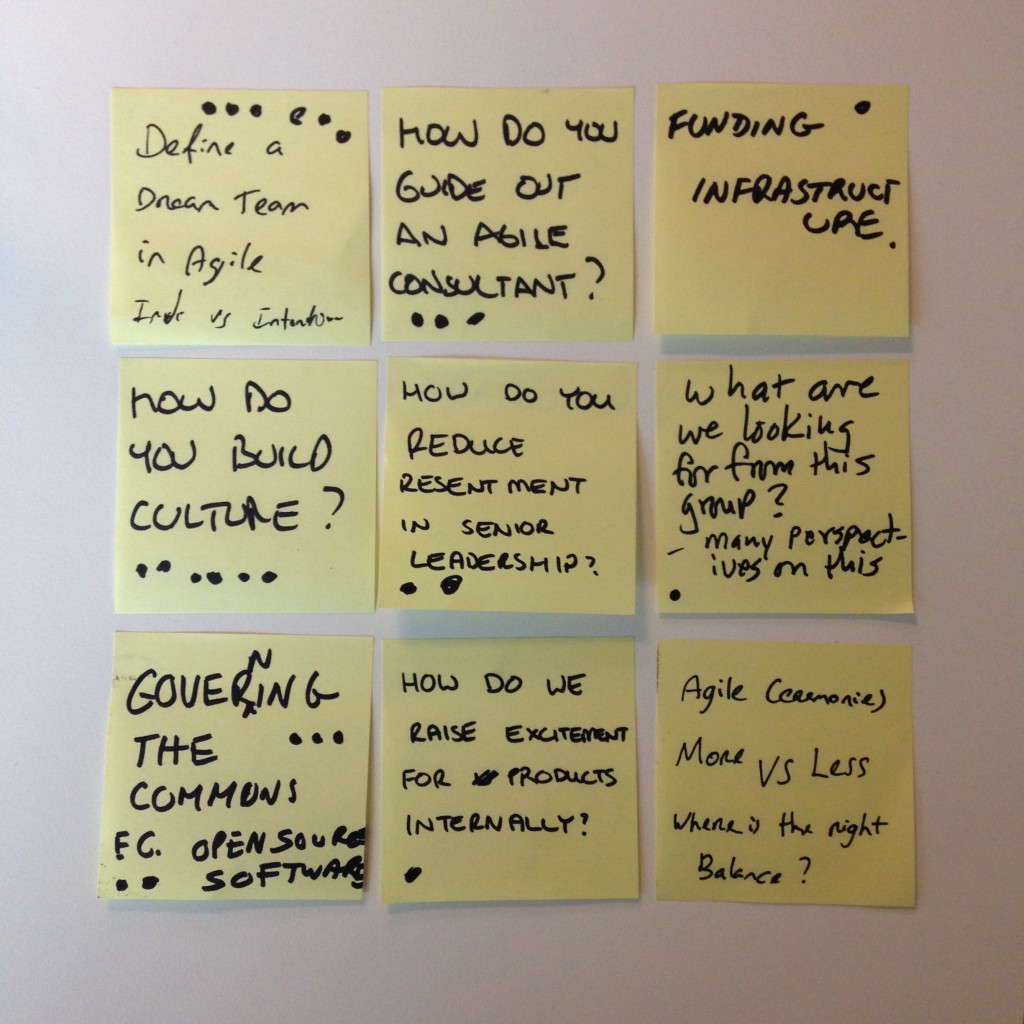 Define a
Dream Team
in Agile
vs Intention
HOW DO YOU
GUIDE OUT
AN AGILE
CONSULTANT?
FUNDING
INFRASTRUCT
URE.
HOW DO
YOU BUILD
CULTURE?
HOW DO YOU
REDUCE
RESENTMENT
IN SENIOR
LEADERSHIP?
What are
we looking
for from this
group?
- many perspect-
ives on this
GOVERNING
THE
COMMONS
E.G. OPENSOURCE
SOFTWARE
HOW DO WE
RAISE EXCITEMENT
FOR PRODUCTS
INTERNALLY?
Agile Ceremonies
More vs Less
Where is the right
Balance?